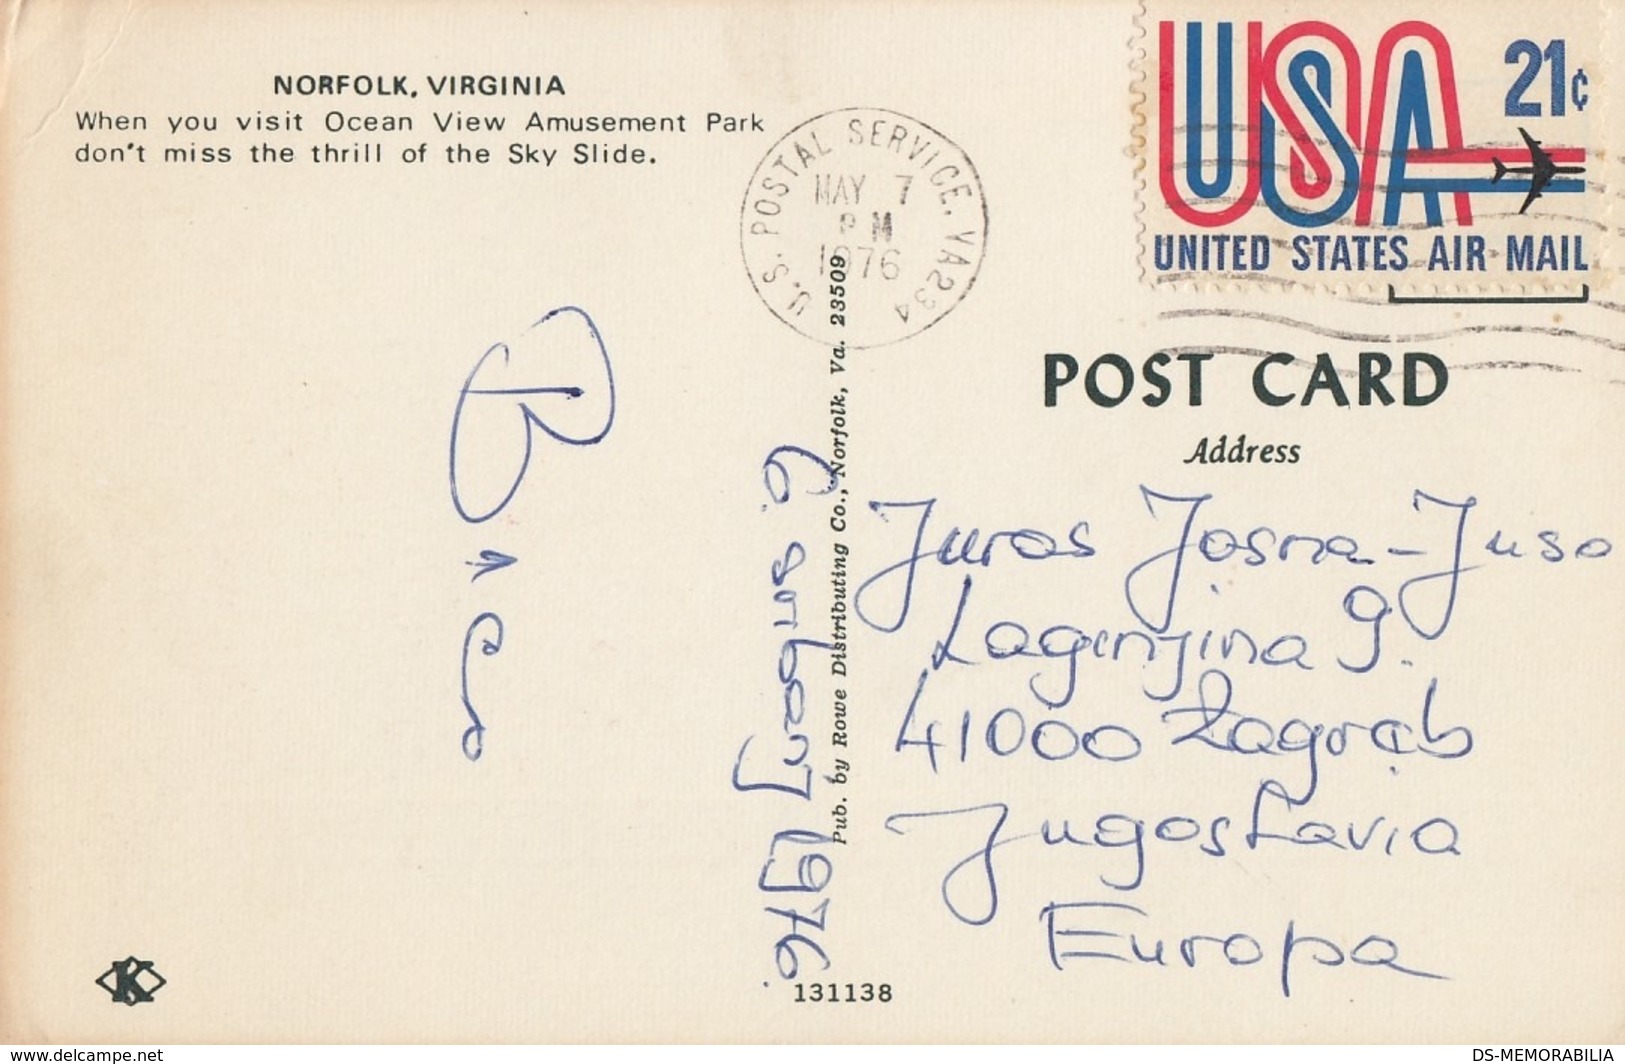 NORFOLK, VIRGINIA
When you visit Ocean View Amusement Park
don't miss the thrill of the Sky Slide.
U.S. POSTAL SERVICE. VA234
MAY 7
PM
1976
USA 21¢
UNITED STATES AIR MAIL
POST CARD
Address
Juras Jasna-Juso
Laginjina 9.
41000 Zagreb
Jugoslavia
Europa
6. svibanj 1976.
Pub. by Rowe Distributing Co., Norfolk, Va. 23509
K
131138
www.delcampe.net
DS-MEMORABILIA